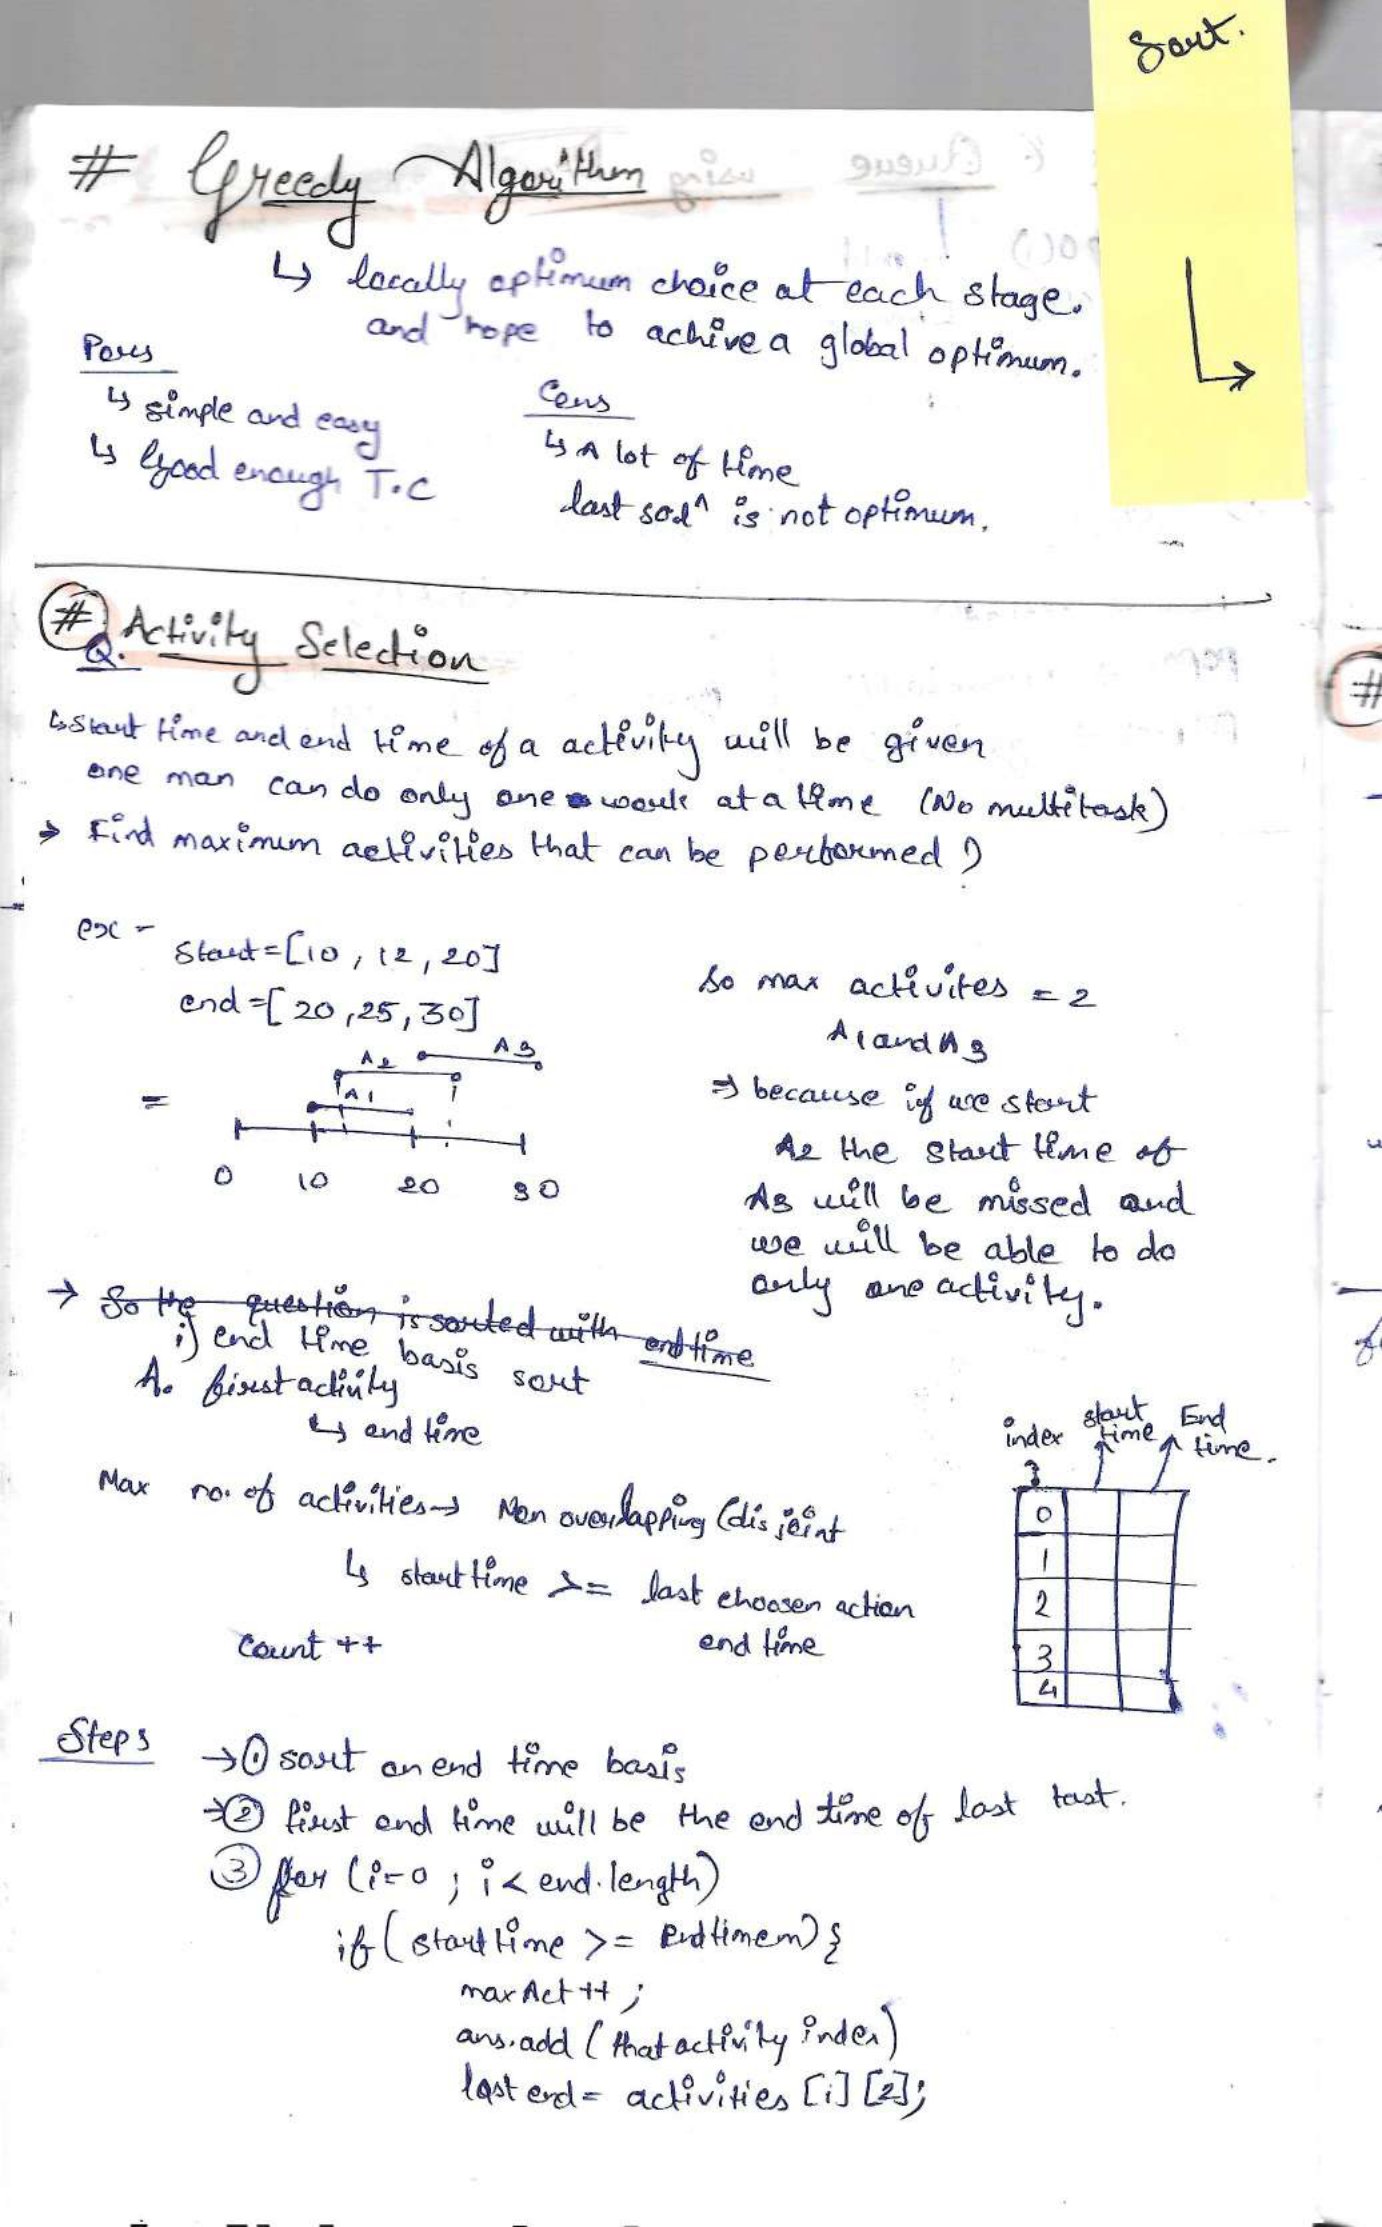 Sort.
# Greedy Algorithm
↳ locally optimum choice at each stage.
and hope to achive a global optimum.
Pros
↳ simple and easy
↳ Good enough T.C
Cons
↳ A lot of time
last soln is not optimum.
# Activity Selection
Q.
↳ Start time and end time of a activity will be given
one man can do only one work at a time (No multitask)
→ Find maximum activities that can be performed ?
ex -
Start = [10, 12, 20]
end = [20, 25, 30]
A2 A3
= A1
0 10 20 30
So max activites = 2
A1 and A3
⇒ because if we start
A2 the start time of
A3 will be missed and
we will be able to do
only one activity.
→ So the question is sorted with end time
i) end time basis sort
A. first activity
↳ end time
Max no. of activities → Non overlapping (disjoint
↳ start time >= last choosen action
end time
Count ++
index start time End time.
0
1
2
3
4
Steps
→ ① sort on end time basis
→ ② first end time will be the end time of last tast.
③ for (i=0 ; i < end.length)
if (start time >= Endtimem) {
maxAct ++ ;
ans.add (that activity index)
last end = activities [i] [2];
#